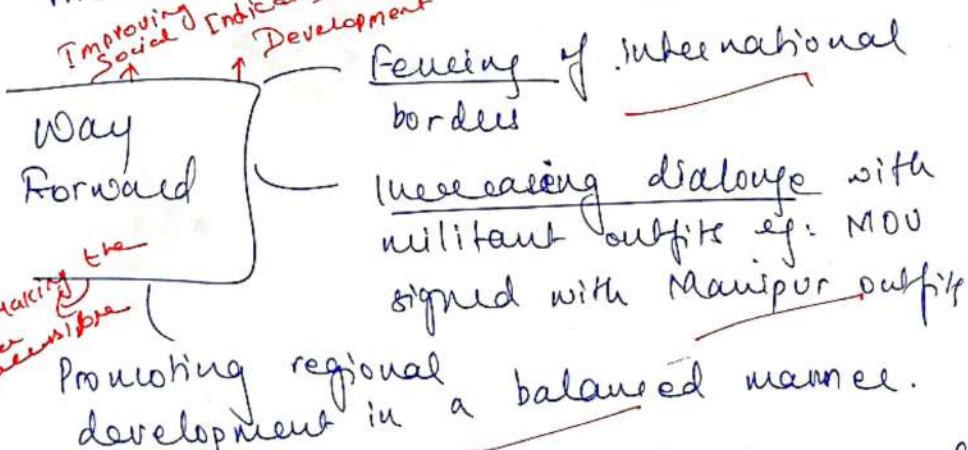 Improving
Social Indica
Development
Way
Forward
Fencing of international
borders
Increasing dialouge with
militant outfits eg: MOU
signed with Manipur outfits
the
Promoting regional
development in a balanced manner.